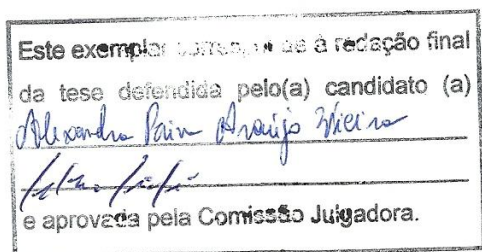 Este exemplar corresponde à redação final
da tese defendida pelo(a) candidato (a)
Alexandra Paiva Araújo Vieira
e aprovada pela Comissão Julgadora.